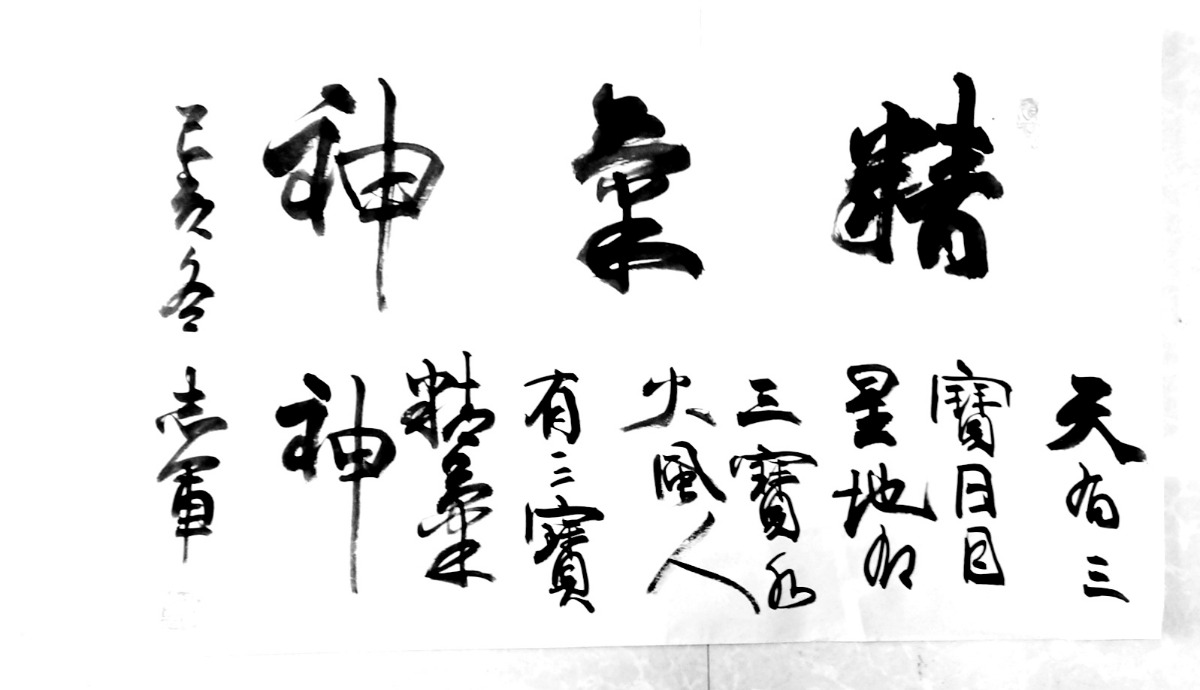 精氣神
天有三
寶日月
星地有
三寶水
火風人
有三寶
精氣
神
己亥冬 志軍